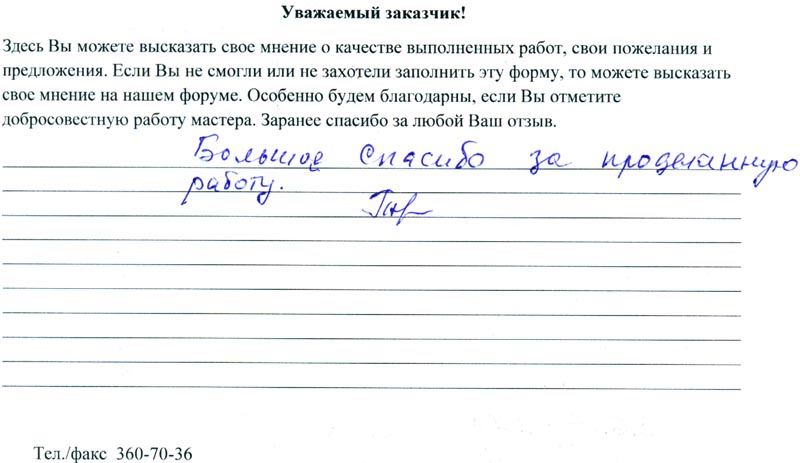 Уважаемый заказчик!
Здесь Вы можете высказать свое мнение о качестве выполненных работ, свои пожелания и
предложения. Если Вы не смогли или не захотели заполнить эту форму, то можете высказать
свое мнение на нашем форуме. Особенно будем благодарны, если Вы отметите
добросовестную работу мастера. Заранее спасибо за любой Ваш отзыв.
Большое спасибо за проделанную
работу.
Тел./факс 360-70-36